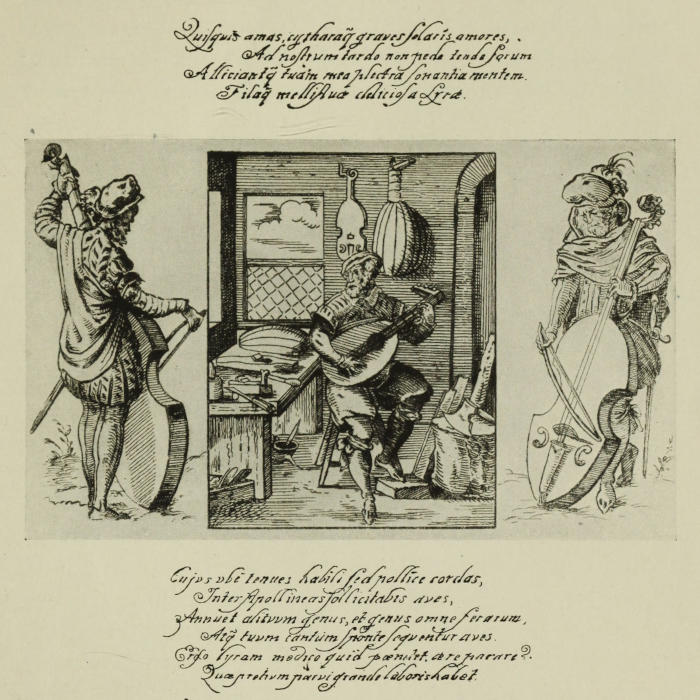 Quisquis amas, cytharaq̃ graves solaris amores,
Ad nostrum tardo non pede tende forum
Alliciantq̃ tuam mea plectra sonantia mentem.
Filaq̃ mellifluæ deliciosa Lyræ.
Cujvs vbi tenues habili sed pollice cordas,
Inter Apollineas sollicitabis aves,
Annuet alitvvm genus, et genus omne ferarum,
Atq̃ tuvm cantum sponte sequentur aves.
Ergo lyram modico quid pœnitet ære parare?
Quæ pretium parvi grande laboris habet.